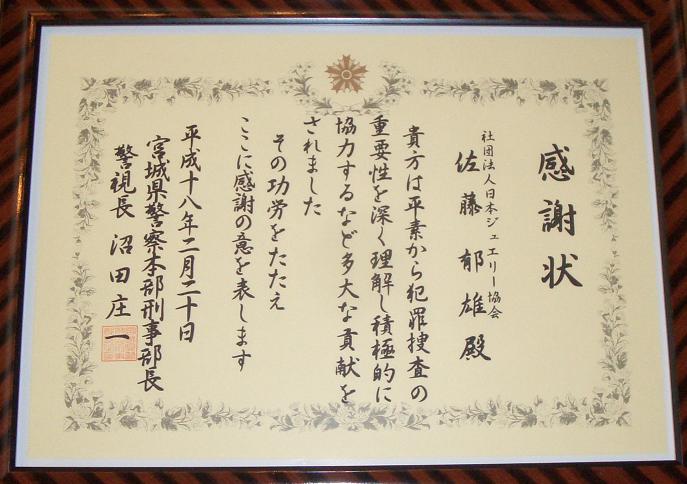 感謝状
社団法人日本ジュエリー協会
佐藤郁雄殿
貴方は平素から犯罪捜査の
重要性を深く理解し積極的に
協力するなど多大な貢献を
されました
その功労をたたえ
ここに感謝の意を表します
平成十八年二月二十日
宮城県警察本部刑事部長
警視長 沼田庄一